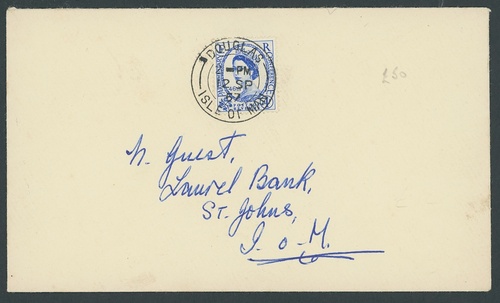 DOUGLAS
R
-PM
2 SP
57
ISLE OF MAN
£50
N. Guest,
Laurel Bank,
St. Johns,
I. o. M.